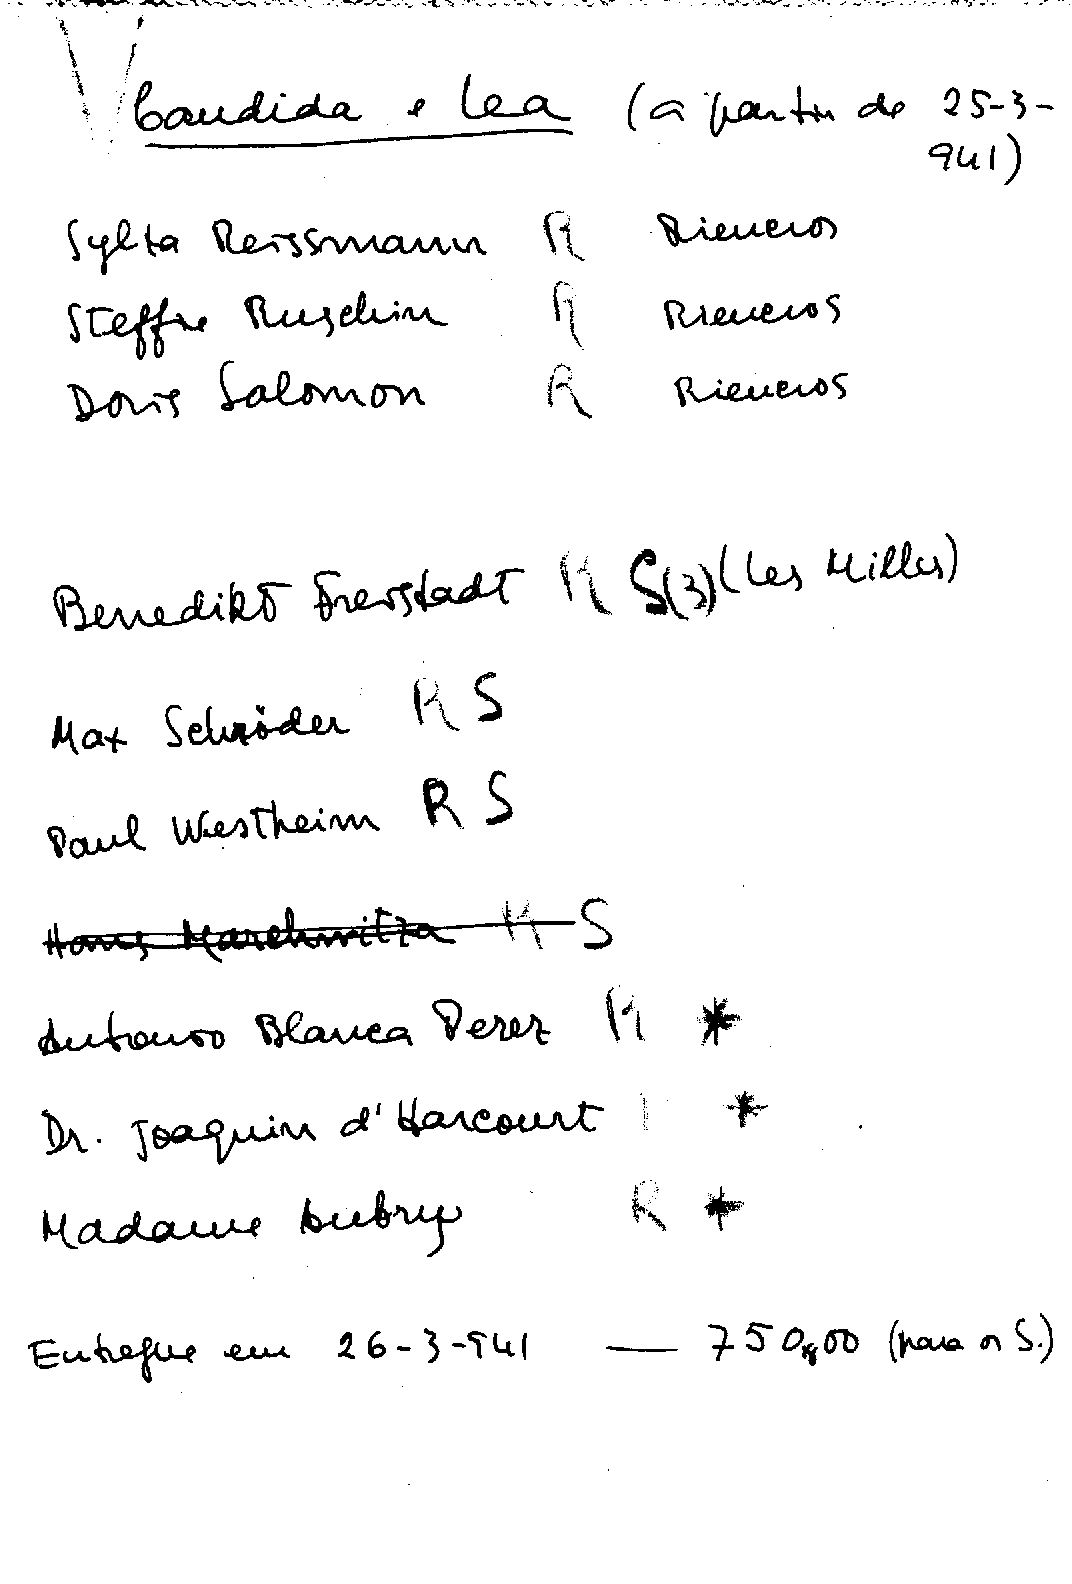 Candida e Lea (a partir de 25-3-
941)
Sylta Reissmann R Rieucros
Steffie Ruschin R Rieucros
Doris Salomon R Rieucros
Benedikt Freistadt R S(3) (Les Milles)
Max Schröder R S
Paul Westheim R S
Hans Marchwitza R S
Antonio Blanca Perez R *
Dr. Joaquin d'Harcourt *
Madame Aubry R *
Entregue em 26-3-941 — 750$00 (para os S.)